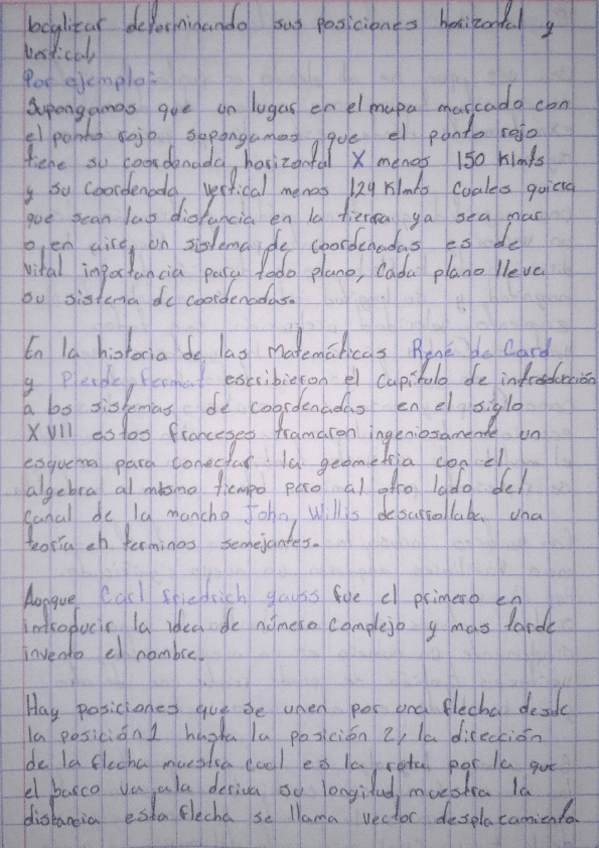 localizar determinando sus posiciones horizontal y
vertical,
Por ejemplo:
Supongamos que un lugar en el mapa marcado con
el punto rojo supongamos que el punto rojo
tiene su coordenada horizontal X menos 150 Klmts
y su coordenada vertical menos 124 Klmts cuales quiera
que sean las distancia en la tierra ya sea mar
o en aire, un sistema de coordenadas es de
vital importancia para todo plano, Cada plano lleva
su sistema de coordenadas.
En la historia de las Matemáticas René de Card
y Pierde Fermat escribieron el capítulo de introducción
a los sistemas de coordenadas en el siglo
XVII estos franceses tramaron ingeniosamente un
esquema para conectar la geometria con el
algebra al mismo tiempo pero al otro lado del
canal de la mancha John Willis desarrollaba una
teoría en terminos semejantes.
Aonque Carl Friedrich gauss fue el primero en
introducir la idea de número complejo y mas tarde
invento el nombre.
Hay posiciones que se unen por una flecha desde
la posición 1 hasta la posición 2, la dirección
de la flecha muestra cual es la rota por la que
el barco va ala deriva su longitud muestra la
distancia esta flecha se llama vector desplacamiento.